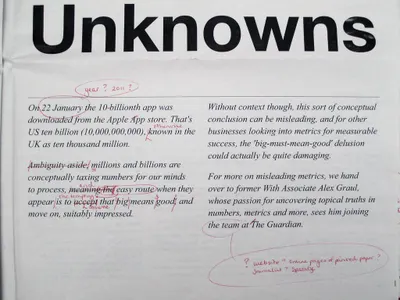 Unknowns
year? 2011?
On 22 January the 10-billionth app was
downloaded from the Apple App store. That's
otherwise
US ten billion (10,000,000,000), known in the
UK as ten thousand million.
Ambiguity aside, millions and billions are
conceptually taxing numbers for our minds
to process, meaning the easy route when they
appear is to accept that big means good, and
move on, suitably impressed.
Without context though, this sort of conceptual
conclusion can be misleading, and for other
businesses looking into metrics for measurable
success, the 'big-must-mean-good' delusion
could actually be quite damaging.
For more on misleading metrics, we hand
over to former With Associate Alex Graul,
whose passion for uncovering topical truths in
numbers, metrics and more, sees him joining
the team at The Guardian.
? website? pages